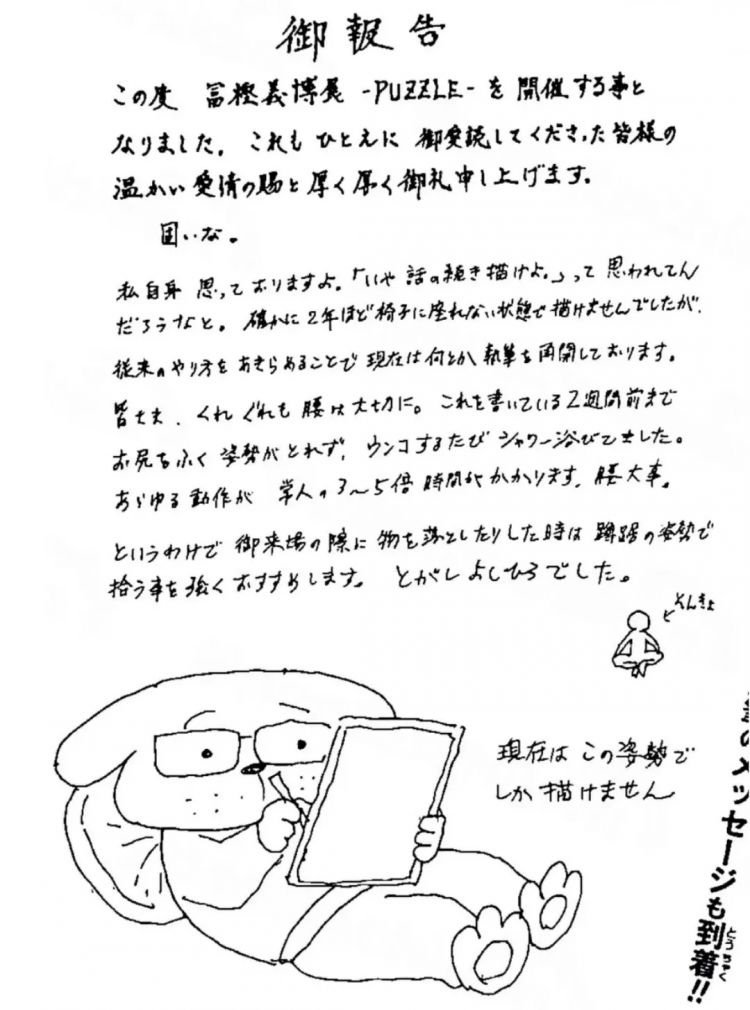 御報告
この度 冨樫義博展 -PUZZLE- を 開催する事と
なりました。これも ひとえに 御愛読してくださった皆様の
温かい愛情の賜と厚く厚く御礼申し上げます。
固いな。
私自身 思っておりますよ。「いや 話の続き描けよ。」って 思われてん
だろうなと。確かに2年ほど椅子に座れない状態で描けませんでしたが、
従来のやり方をあきらめることで現在は何とか執筆を再開しております。
皆さま、くれぐれも 腰は大切に。これを書いている2週間前まで
お尻をふく姿勢がとれず、ウンコするたびシャワー浴びてました。
あらゆる動作が 常人の3〜5倍 時間がかかります。腰大事。
というわけで 御来場の際に 物を落としたりした時は 蹲踞の姿勢で
拾う事を強くおすすめします。 とがしよしひろでした。
そんきょ
現在は この姿勢で
しか 描けません
のメッセージも到着!!
とうちゃく